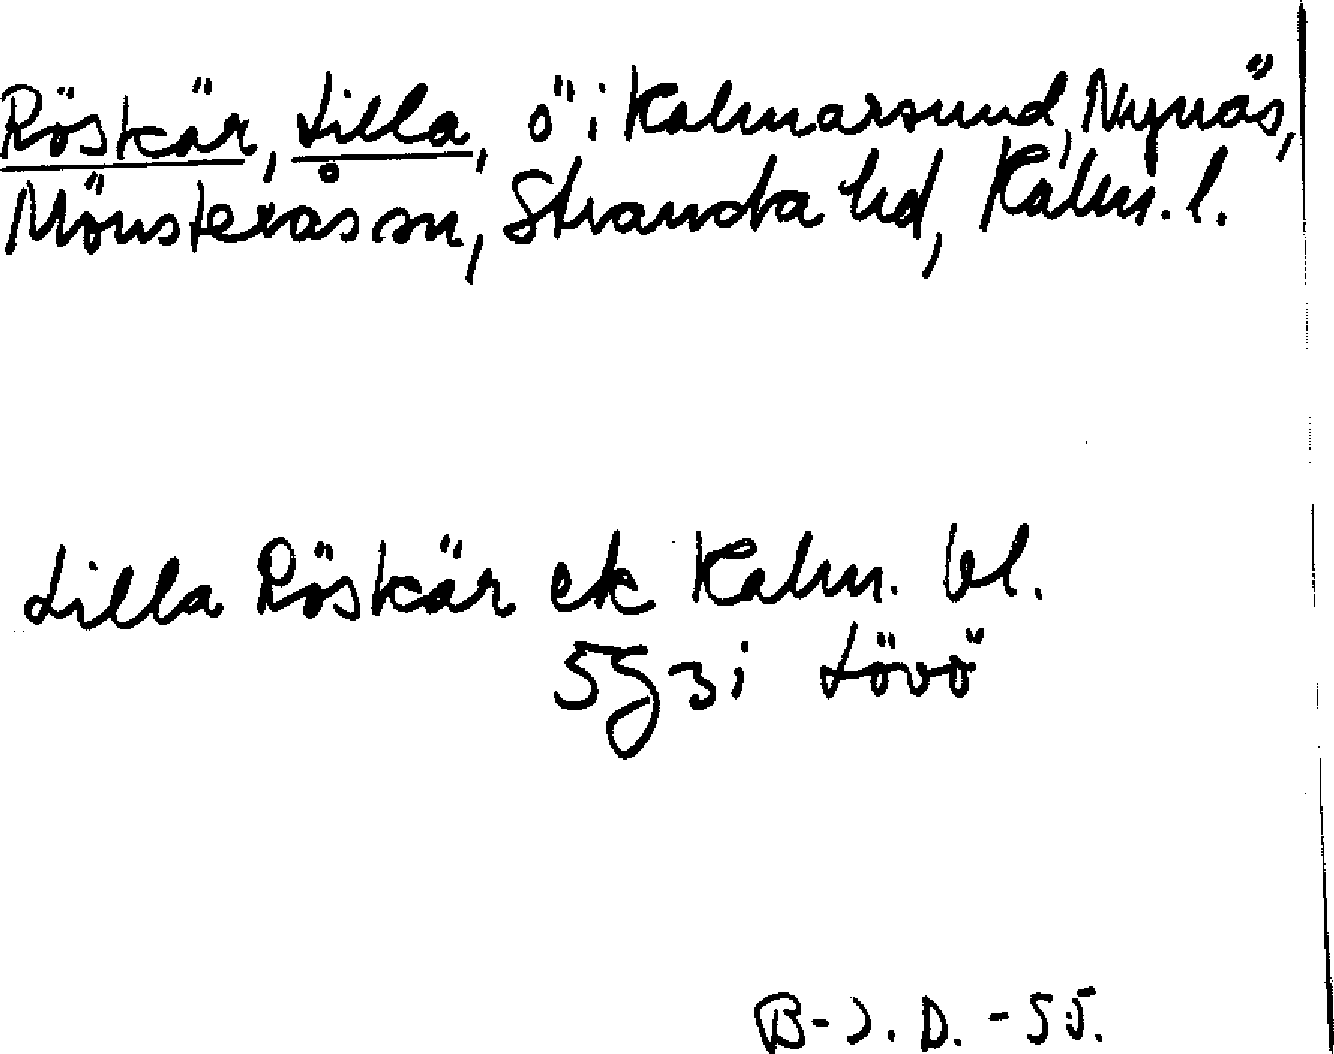 Röskär, Lilla, ö i Kalmarsund, Nynäs,
Mönsterås sn, Stranda hd, Kalm. l.
Lilla Röskär ek Kalm. bl.
5g3i Lövö
B-J. D. -55.